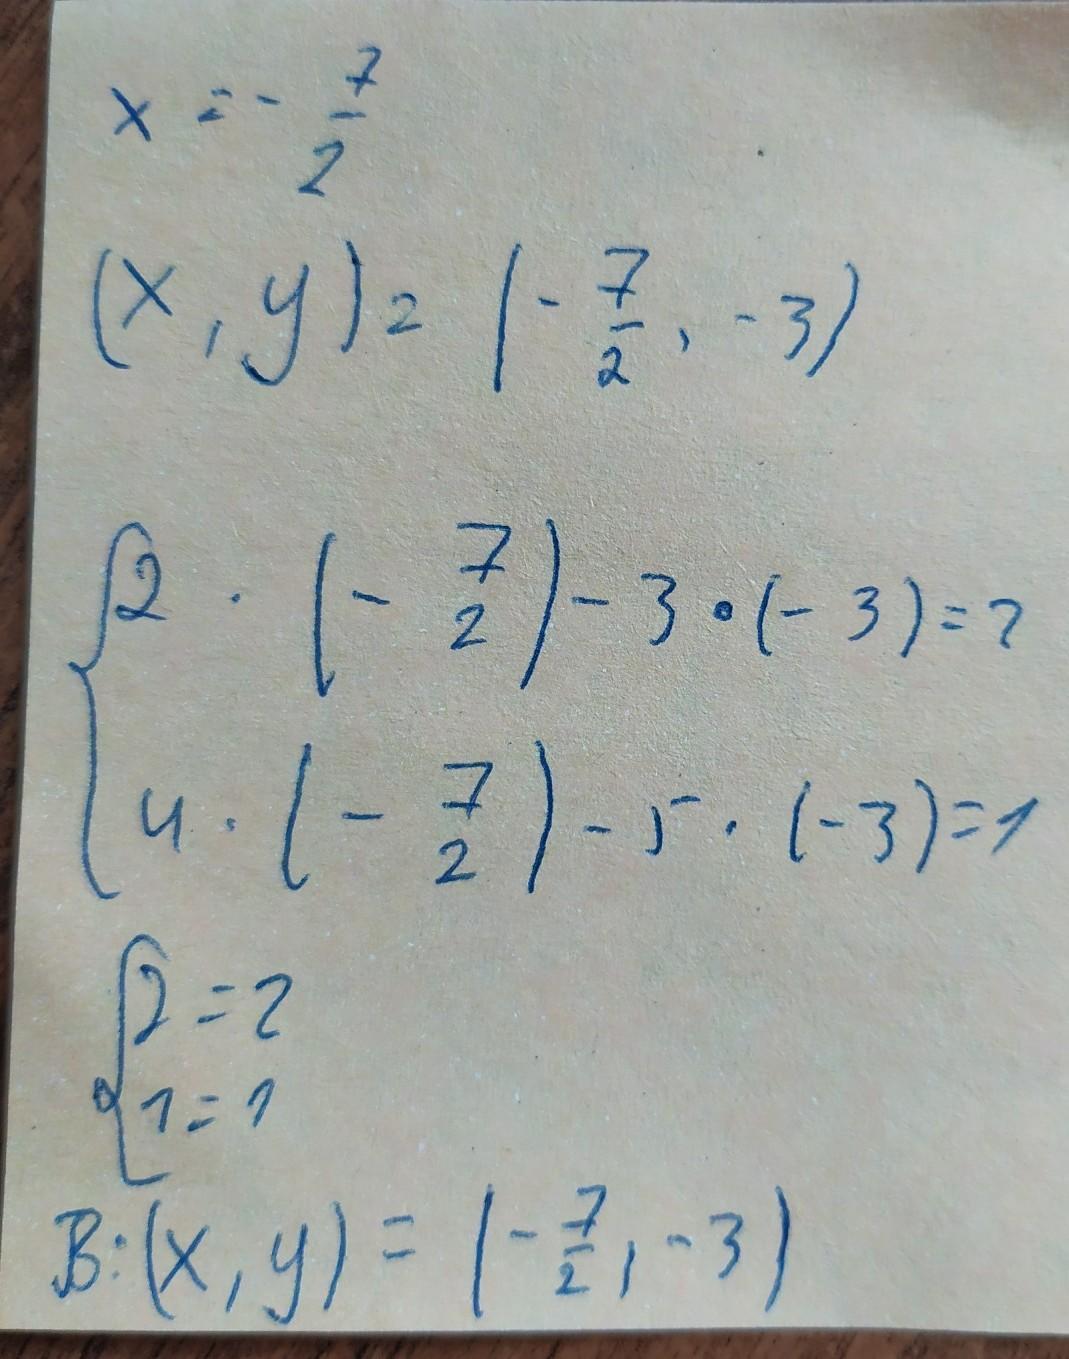 x = - 7/2
(x, y) = (- 7/2, -3)
{ 2 · (- 7/2) - 3 · (- 3) = 2
4 · (- 7/2) - 5 · (-3) = 1
{ 2 = 2
1 = 1
B: (x, y) = (- 7/2, -3)